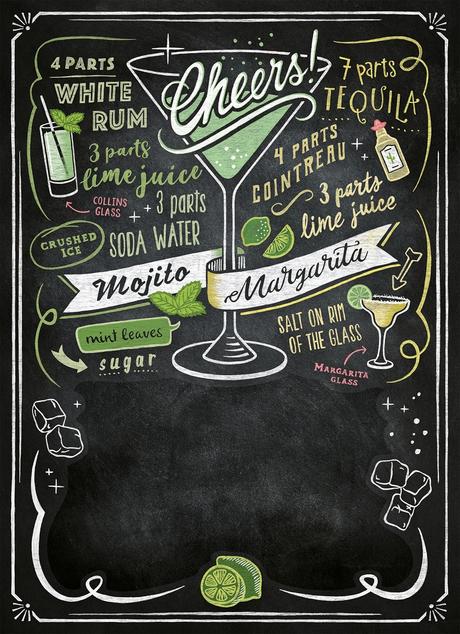 Cheers!
4 PARTS
WHITE
RUM
3 parts
lime juice
COLLINS
GLASS
3 parts
SODA WATER
CRUSHED
ICE
Mojito
mint leaves
sugar
7 parts
TEQUILA
4 PARTS
COINTREAU
3 parts
lime juice
Margarita
SALT ON RIM
OF THE GLASS
MARGARITA
GLASS